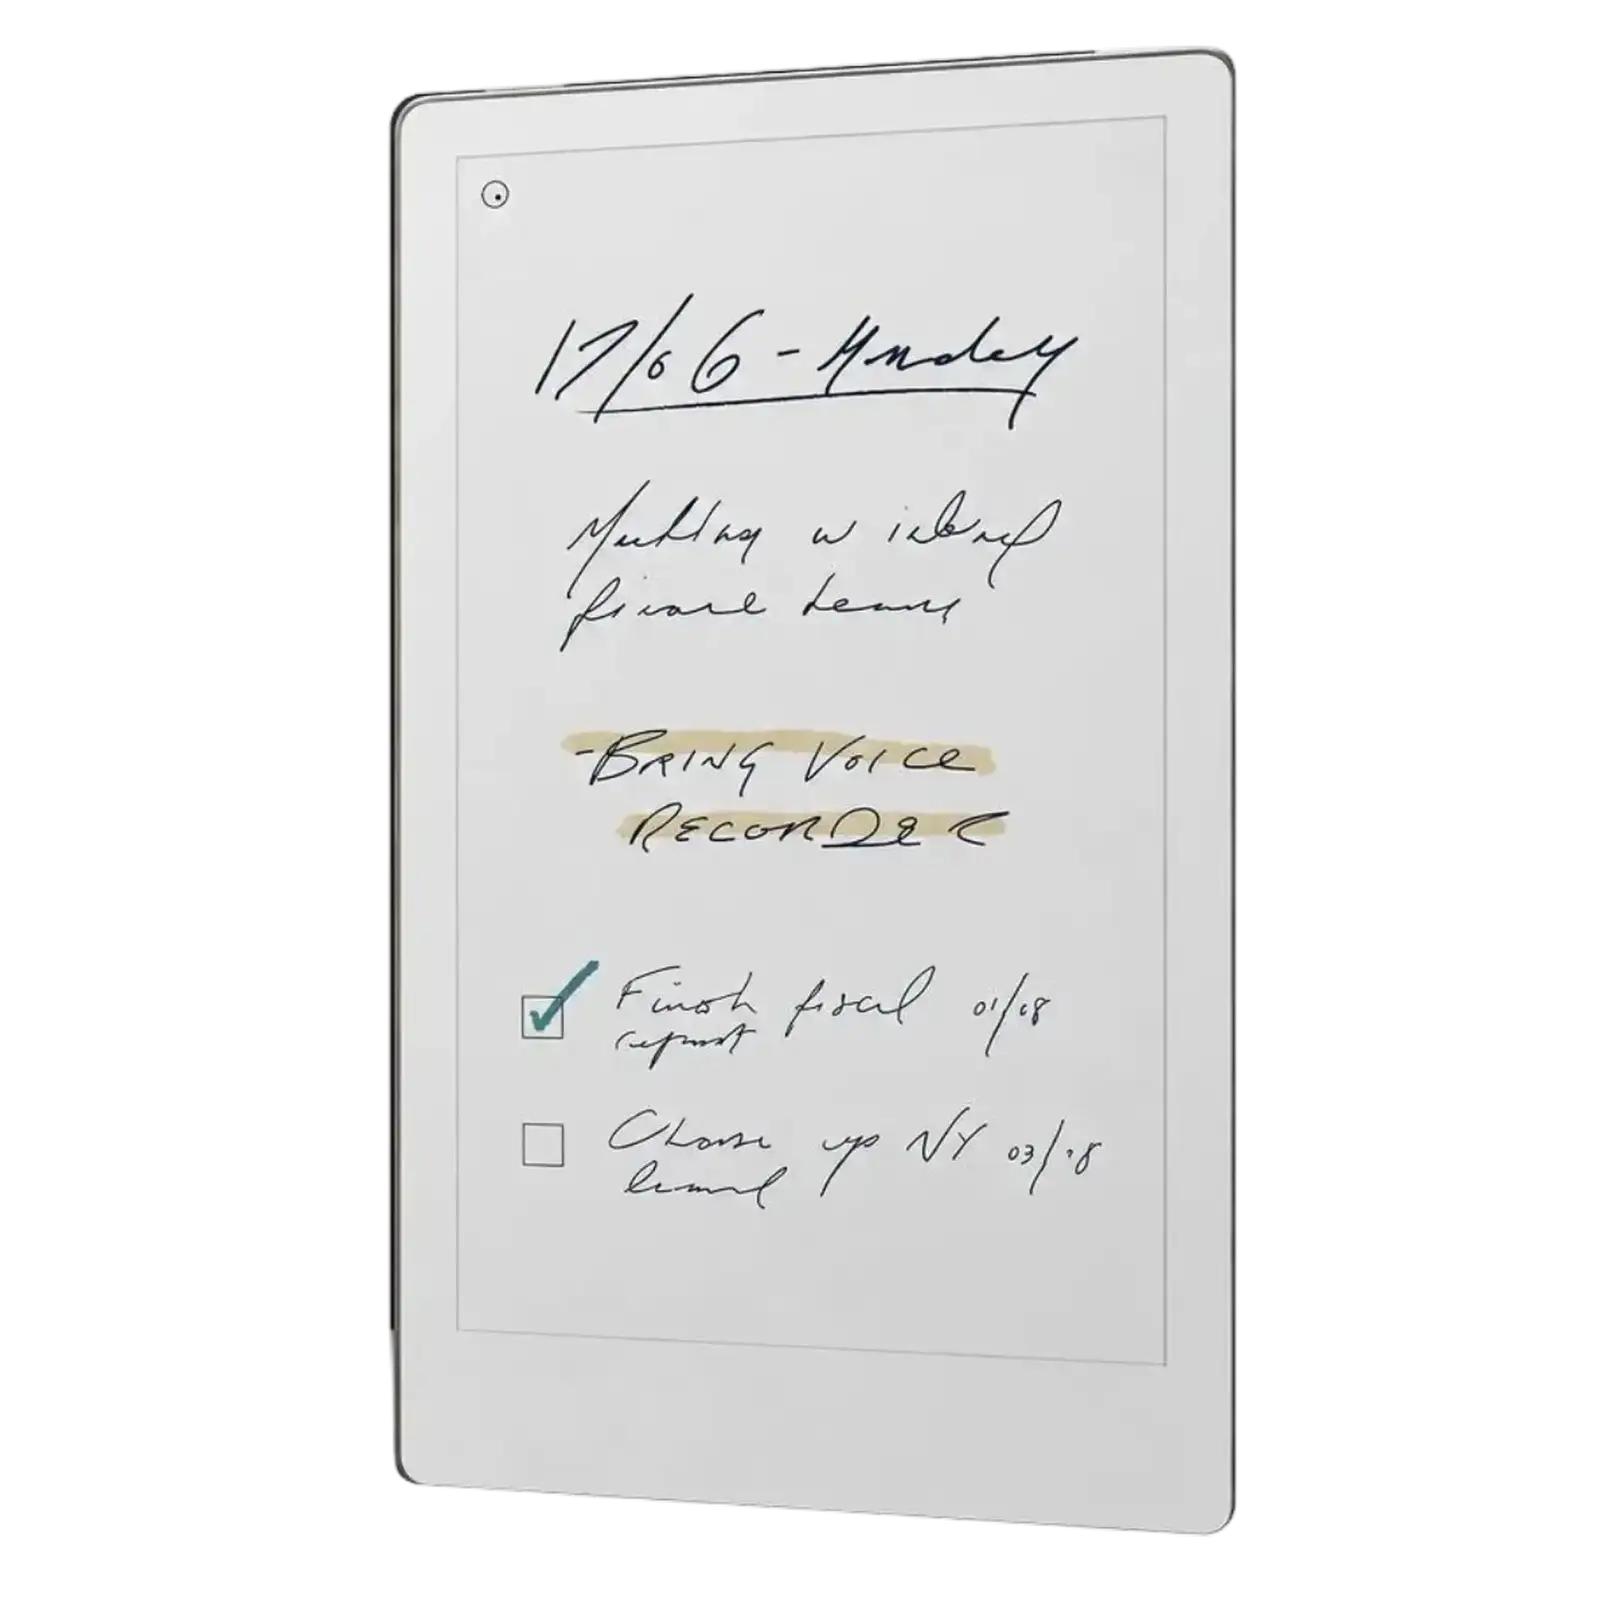 17/06 - Monday
Meeting w internal
finance team
- BRING VOICE
RECORDER
Finish fiscal 01/08
report
Choose up NY 03/08